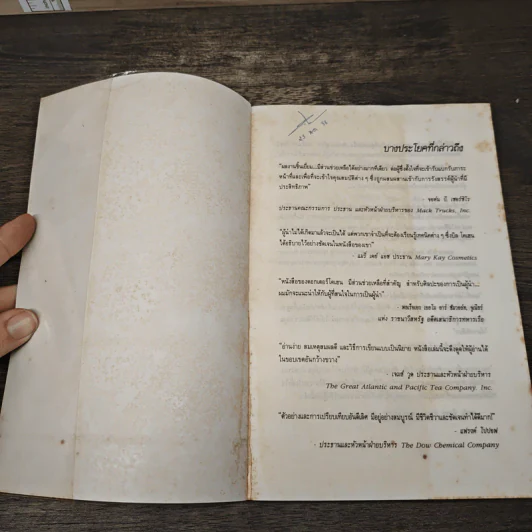 บางประโยคที่กล่าวถึง
"ผลงานชั้นเยี่ยม...มีส่วนช่วยเหลือได้อย่างมากทีเดียว ต่อผู้ซึ่งตั้งใจที่จะเข้ารับแบกรับภาระ
หน้าที่และเพื่อที่จะเข้าใจคุณสมบัติต่าง ๆ ซึ่งถูกผสมผสานเข้ากับการรังสรรค์ผู้นำที่มี
ประสิทธิภาพ"
- จอห์น บี
ประธานคณะกรรมการ ประธาน และหัวหน้าฝ่ายบริหารของ Mack Trucks, Inc.
"ผู้นำไม่ได้เกิดมาแล้วจะเป็นได้ แต่พวกเขาจำเป็นที่จะต้องเรียนรู้เทคนิคต่าง ๆ ซึ่งบิล โคเฮน
ได้อธิบายไว้อย่างชัดเจนในหนังสือของเขา"
- แมรี่ เคย์ แอช ประธาน Mary Kay Cosmetics
"หนังสือของดอกเตอร์โคเฮน มีส่วนช่วยเหลือที่สำคัญ สำหรับศิลปะของการเป็นผู้นำ...
ผมมักจะแนะนำให้กับผู้ที่สนใจในการเป็นผู้นำ"
แห่ง ราชนาวีสหรัฐ อดีตเสนาธิการทหารเรือ
"อ่านง่าย สมเหตุสมผลดี และวิธีการเขียนแบบเป็นนิยาย หนังสือเล่มนี้จะดึงดูดให้ผู้อ่านได้
ในขอบเขตอันกว้างขวาง"
เจมส์ วูด ประธานและหัวหน้าฝ่ายบริหาร
The Great Atlantic and Pacific Tea Company, Inc.
"ตัวอย่างและการเปรียบเทียบอันดีเลิศ มีอยู่อย่างสมบูรณ์ มีชีวิตชีวาและชัดเจนทำได้ดีมาก!"
- แฟรงค์ โปปอฟ
- ประธานและหัวหน้าฝ่ายบริหาร The Dow Chemical Company